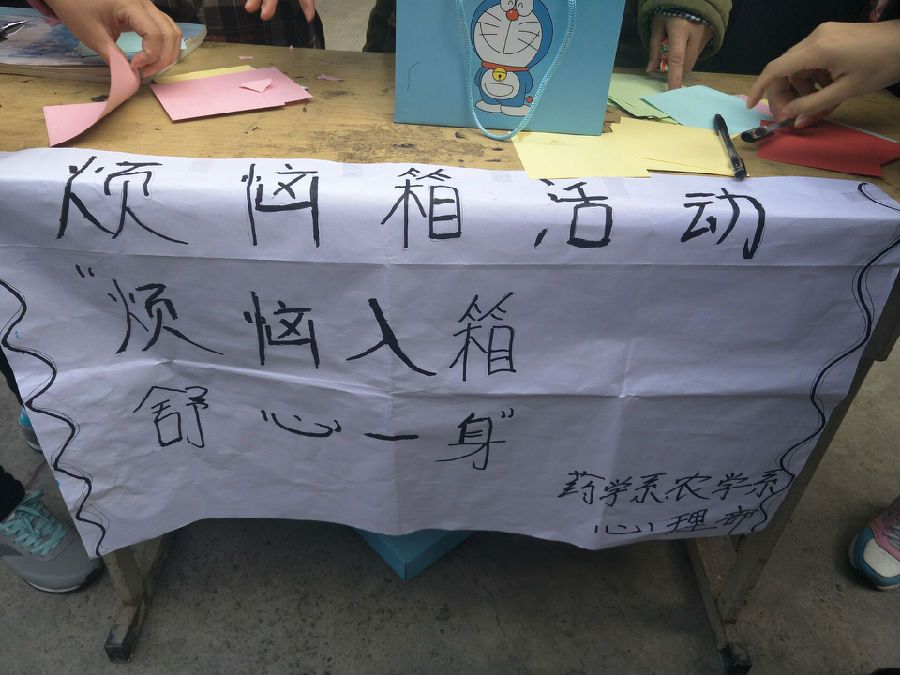 烦恼箱活动
"烦恼入箱
舒心一身"
药学系农学系
心理部